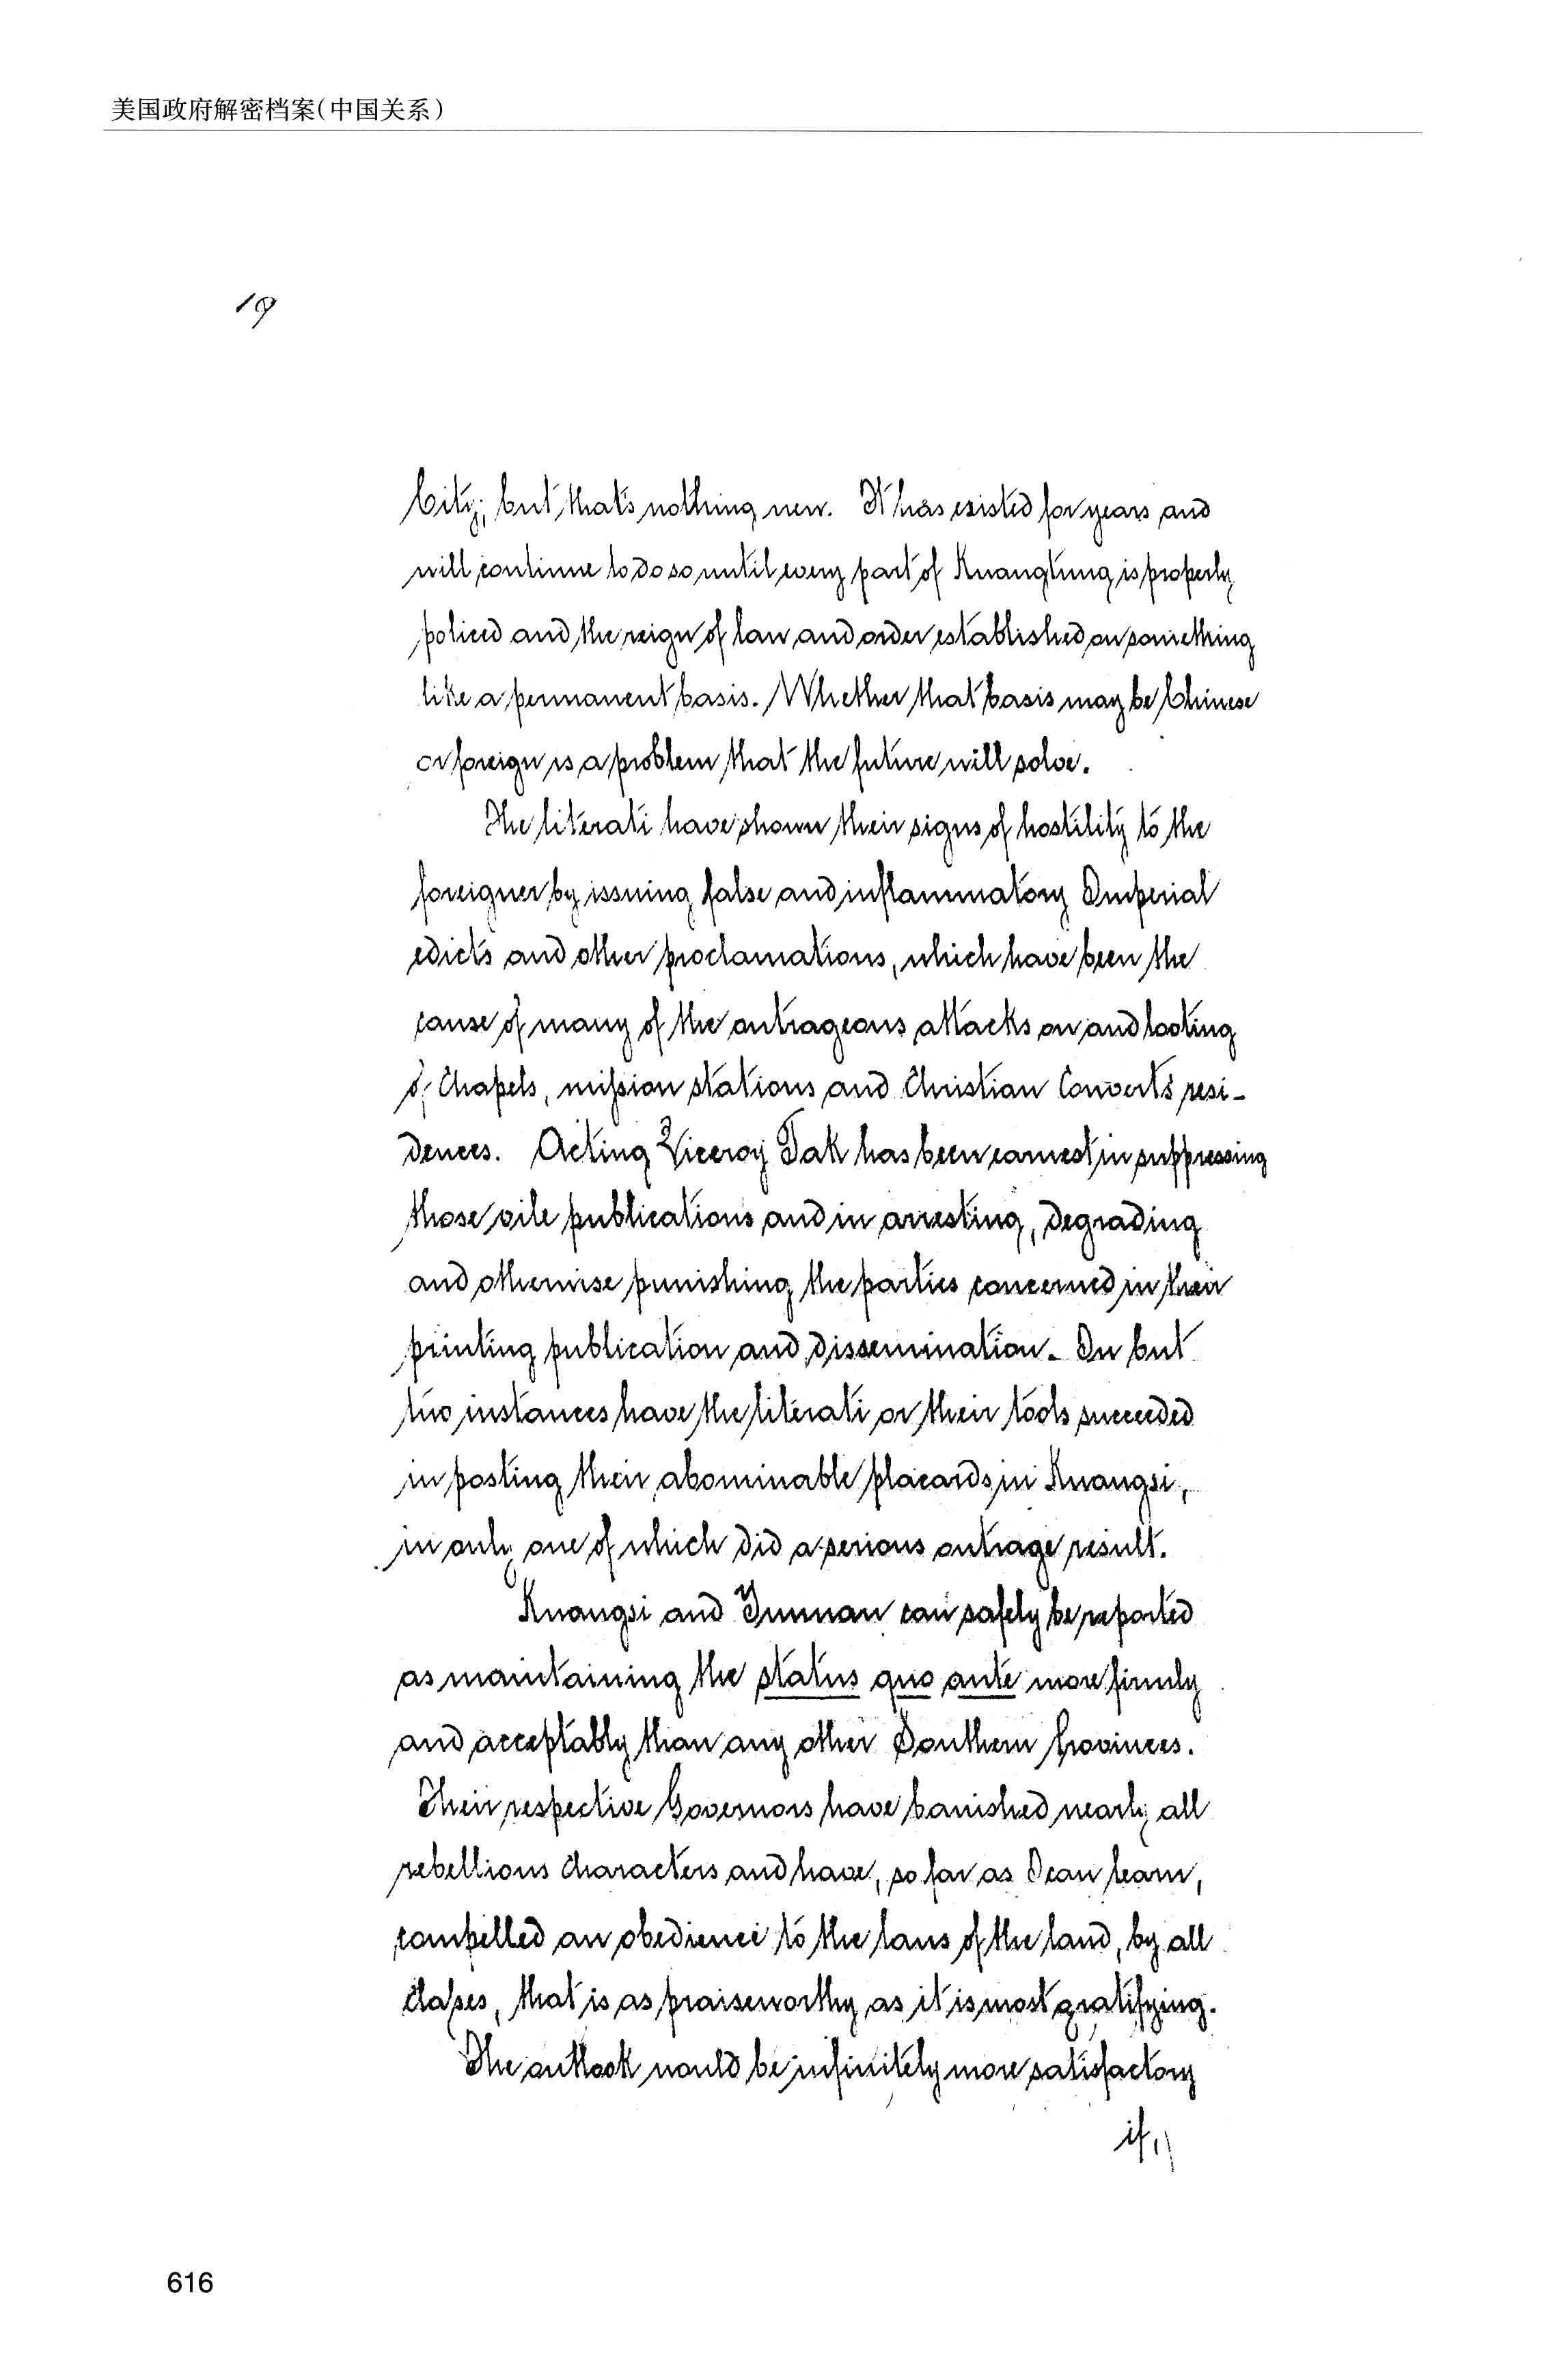 美国政府解密档案（中国关系）
19
City; but that's nothing new. It has existed for years and
will continue to do so until every part of Kuangtung is properly
policed and the reign of law and order established on something
like a permanent basis. Whether that basis may be Chinese
or foreign is a problem that the future will solve.
The literati have shown their signs of hostility to the
foreigner by issuing false and inflammatory Imperial
edicts and other proclamations, which have been the
cause of many of the outrageous attacks on and looting
of Chapels, mission stations and Christian Converts resi-
dences. Acting Viceroy Tak has been earnest in suppressing
those vile publications and in arresting, degrading
and otherwise punishing the parties concerned in their
printing publication and dissemination. In but
two instances have the literati or their tools succeeded
in posting their abominable placards in Kuangsi,
in only one of which did a serious outrage result.
Kuangsi and Yunnan can safely be reported
as maintaining the status quo ante more firmly
and acceptably than any other Southern Provinces.
Their respective Governors have banished nearly all
rebellious characters and have, so far as I can learn,
compelled an obedience to the laws of the land, by all
classes, that is as praiseworthy as it is most gratifying.
The outlook would be infinitely more satisfactory
if,
616